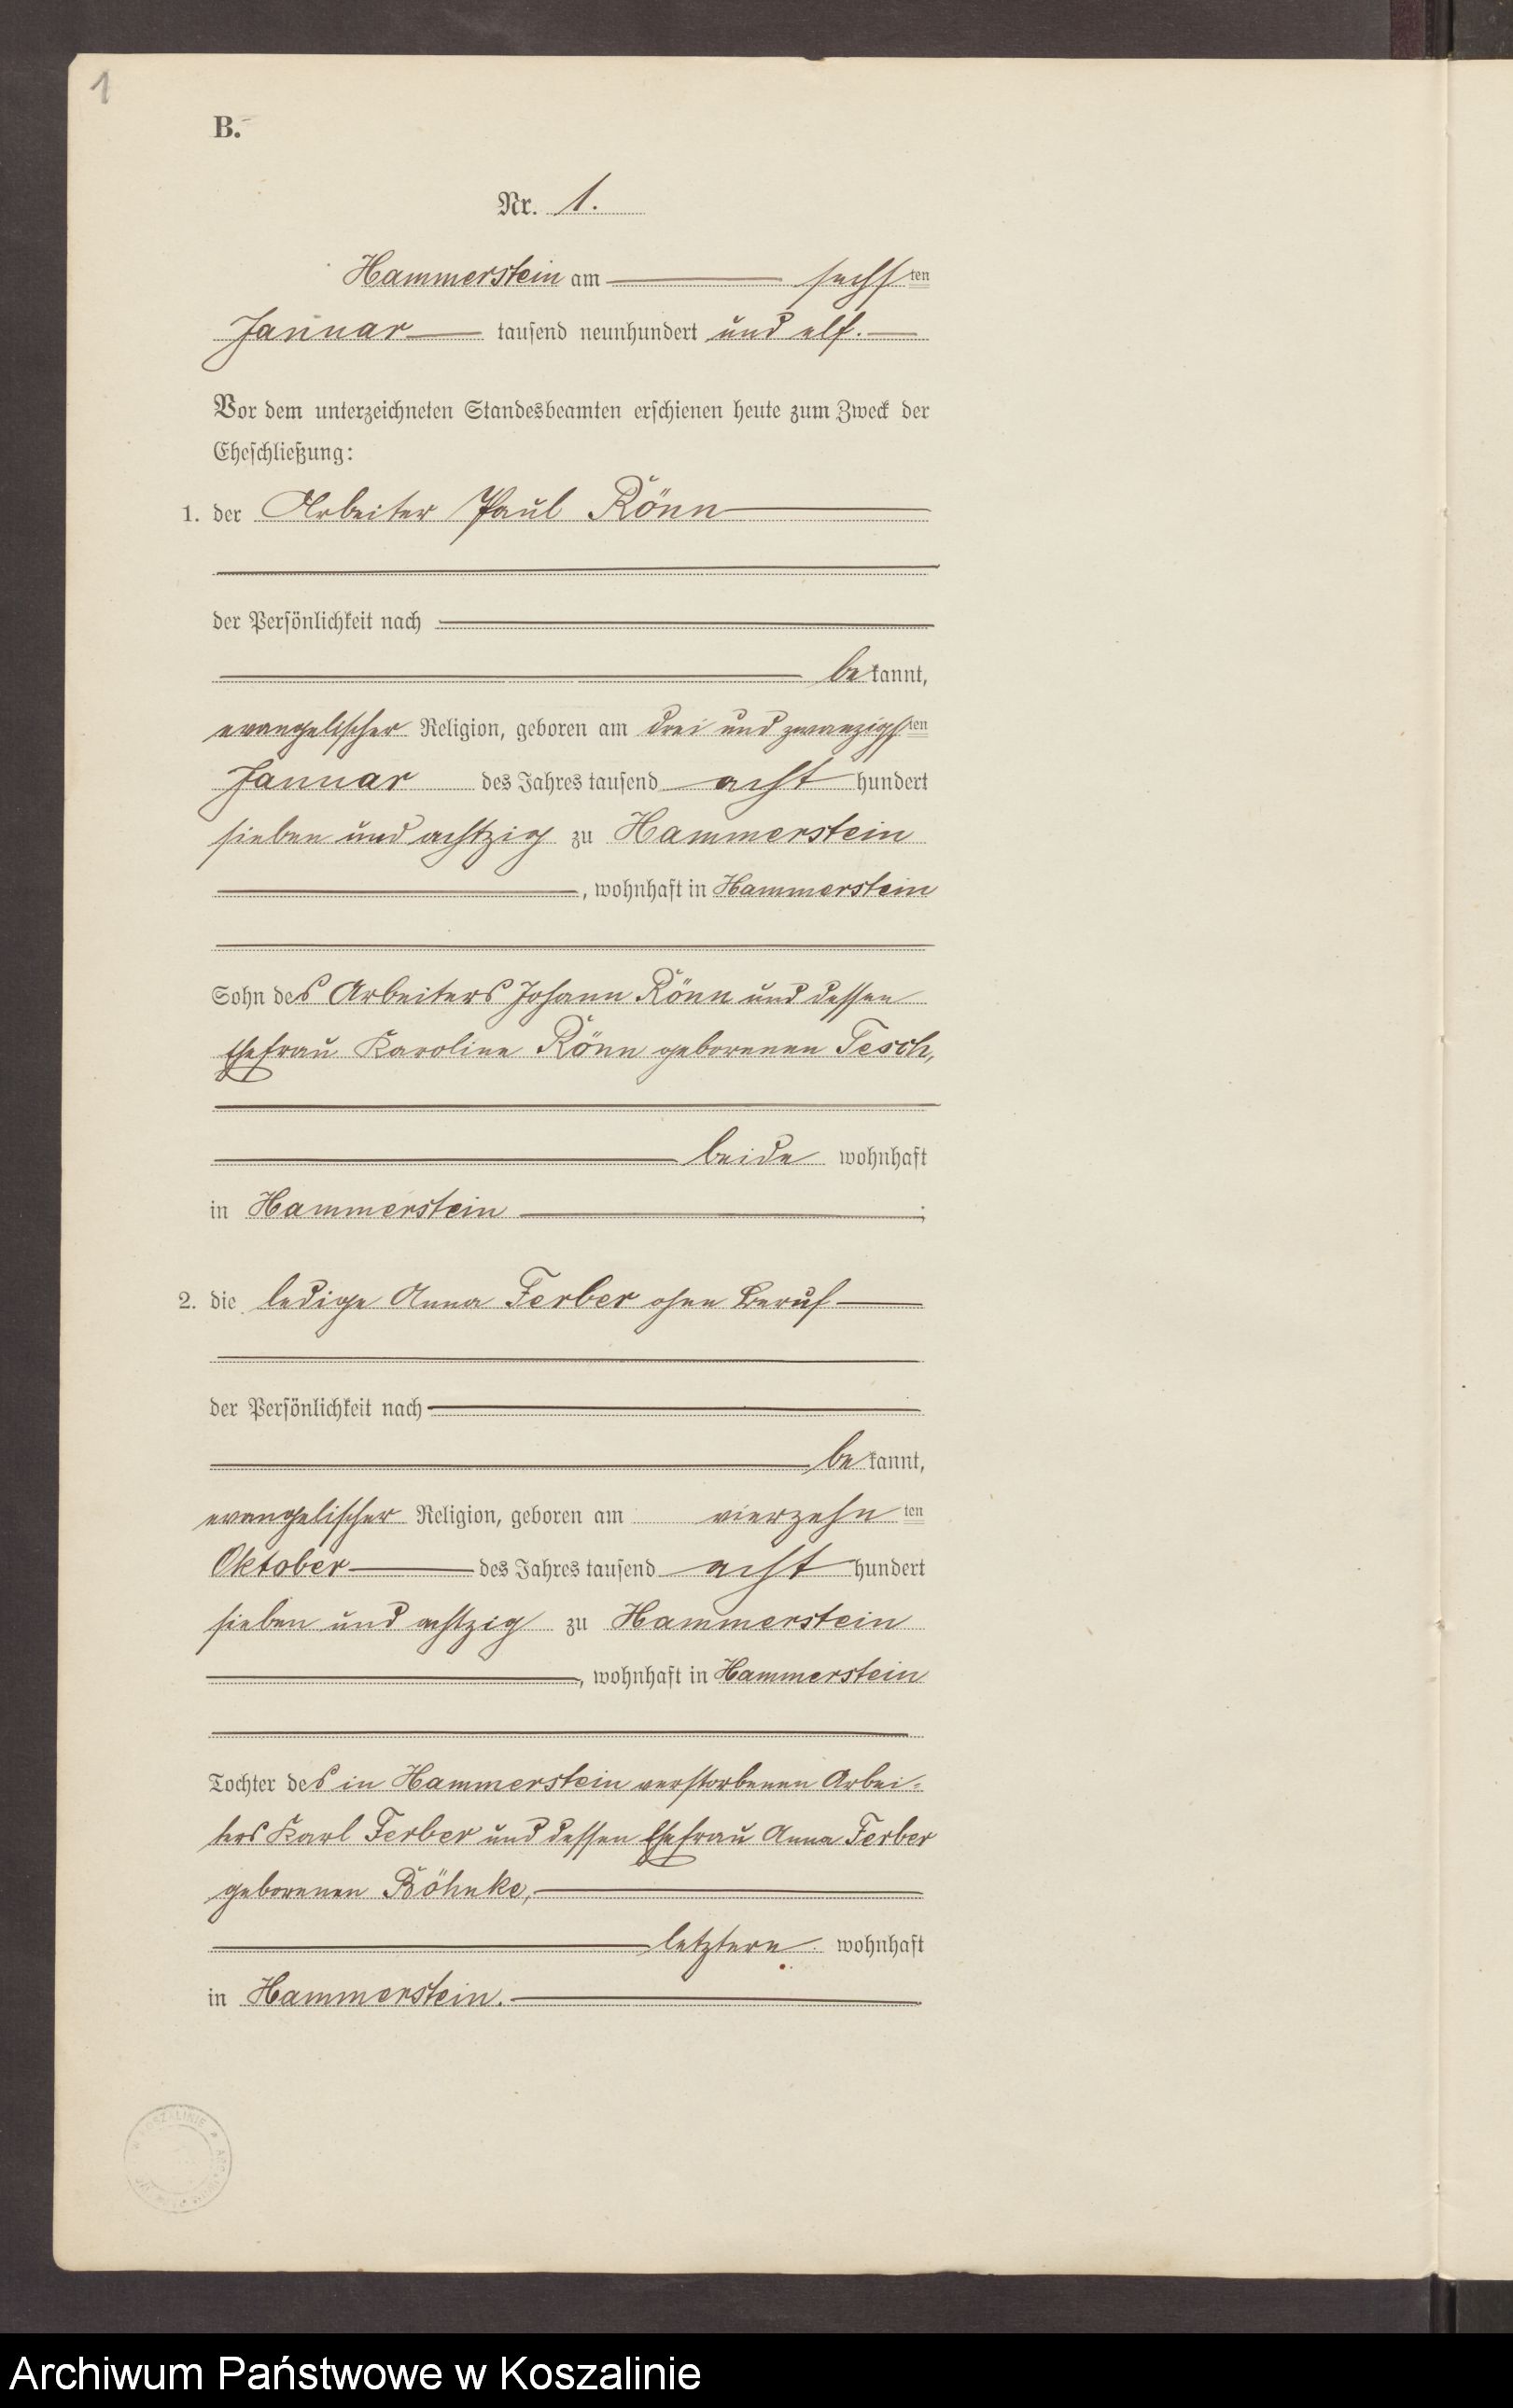 1
B.
Nr. 1.
Hammerstein am sechsten
Januar tausend neunhundert und elf.
Vor dem unterzeichneten Standesbeamten erschienen heute zum Zweck der
Eheschließung:
1. der Arbeiter Paul Rönn
der Persönlichkeit nach
bekannt,
evangelischer Religion, geboren am drei und zwanzigsten
Januar des Jahres tausend acht hundert
sieben und achtzig zu Hammerstein
, wohnhaft in Hammerstein
Sohn des Arbeiters Johann Rönn und dessen
Ehefrau Karoline Rönn geborenen Tesch,
beide wohnhaft
in Hammerstein ;
2. die ledige Anna Ferber ohne Beruf
der Persönlichkeit nach
bekannt,
evangelischer Religion, geboren am vierzehnten
Oktober des Jahres tausend acht hundert
sieben und achtzig zu Hammerstein
, wohnhaft in Hammerstein
Tochter des in Hammerstein verstorbenen Arbei-
ters Karl Ferber und dessen Ehefrau Anna Ferber
geborenen Böhnke,
letztere wohnhaft
in Hammerstein.
Archiwum Państwowe w Koszalinie